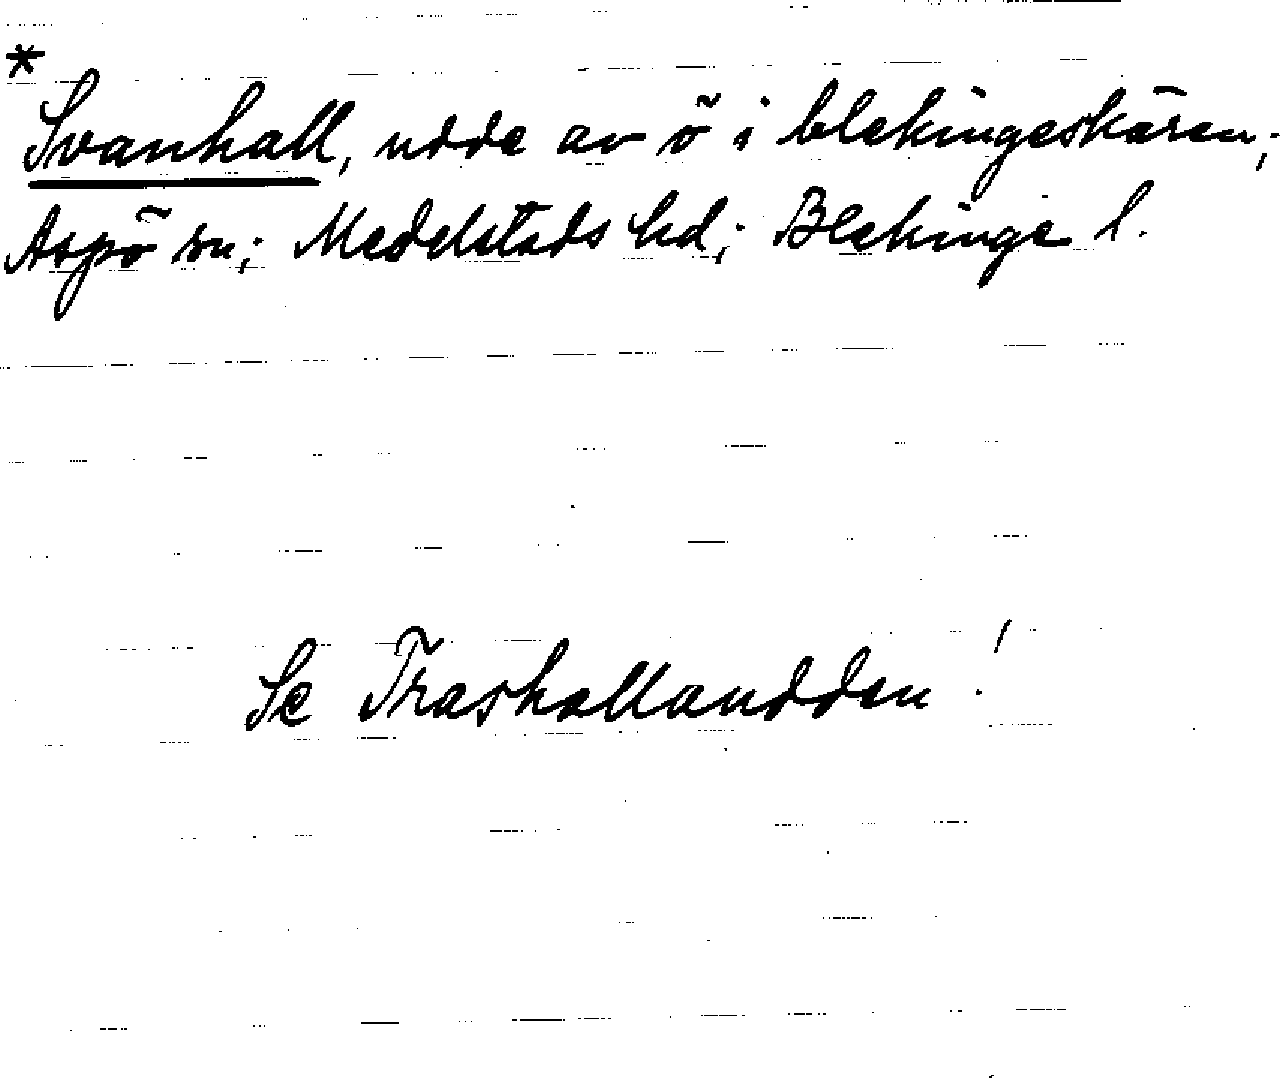 *
Svanhall, udde av ö i blekingeskären;
Aspö sn; Medelstads hd; Blekinge l.
Se Traskallaudden!